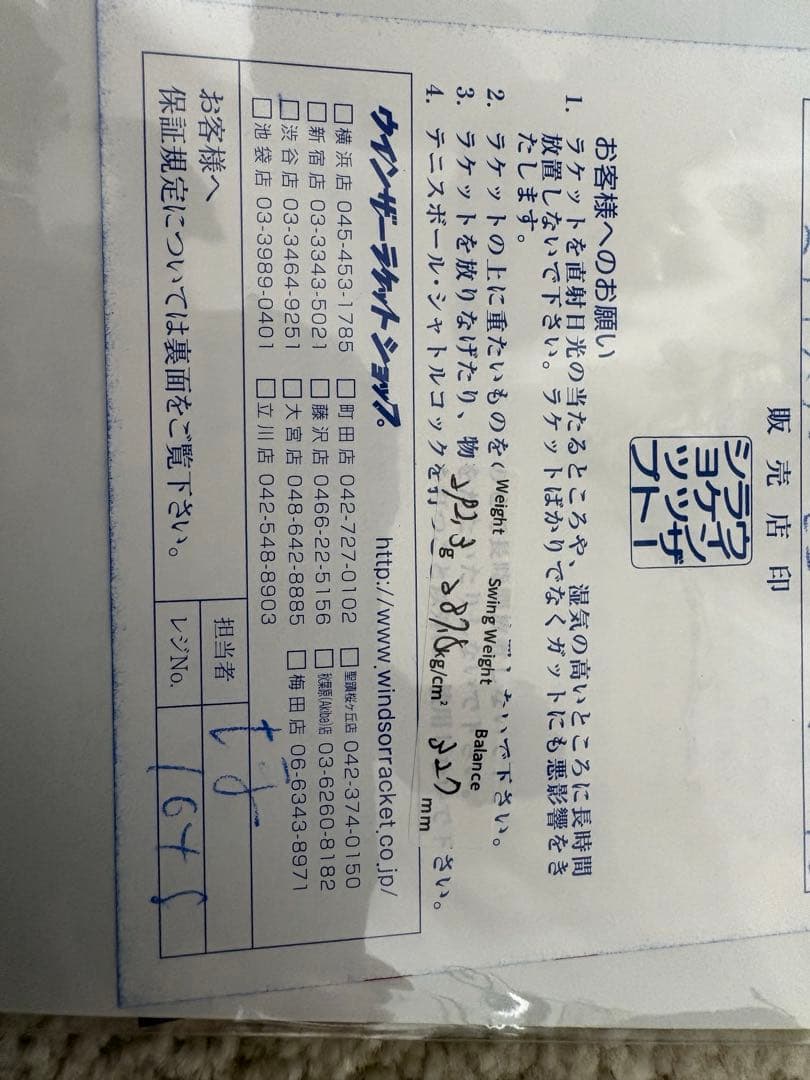 販売店印
ウインザー
ラケット
ショップ
お客様へのお願い
1. ラケットを直射日光の当たるところや、湿気の高いところに長時間
放置しないで下さい。ラケットばかりでなくガットにも悪影響をき
たします。
2. ラケットの上に重たいものを
ないで下さい。
3. ラケットを放りなげたり、物
4. テニスボール・シャトルコックを打つ
下さい。
Weight Swing Weight Balance
g kg/cm² 327 mm
ウインザーラケットショップ。 http://www.windsorracket.co.jp/
□横浜店 045-453-1785 □町田店 042-727-0102 □聖蹟桜ヶ丘店 042-374-0150
□新宿店 03-3343-5021 □藤沢店 0466-22-5156 □秋葉原(Akiba)店 03-6260-8182
□渋谷店 03-3464-9251 □大宮店 048-642-8885 □梅田店 06-6343-8971
□池袋店 03-3989-0401 □立川店 042-548-8903
お客様へ
保証規定については裏面をご覧下さい。
担当者
レジNo.